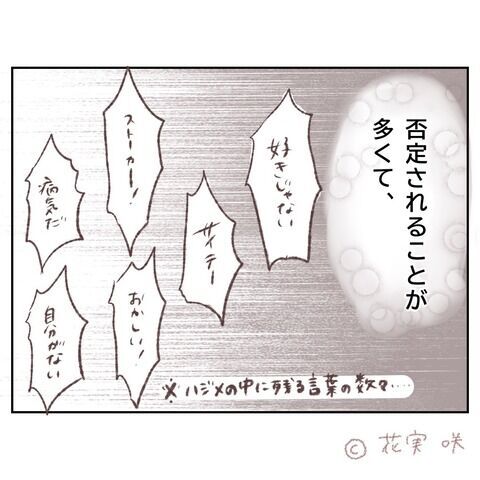 否定されることが
多くて、
好きじゃない
サイテー
ストーカー!
おかしい!
病気だ
自分がない
※ハジメの中に残る言葉の数々‥‥
© 花実 咲